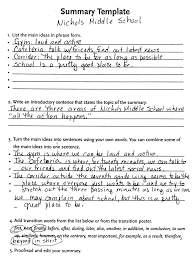 Summary Template
Nichols Middle School
1. List the main ideas in phrase form.
Gym: loud and active
Cafeteria: talk w/friends find out latest news
Corridor: the place to be for as long as possible
School is a pretty good place to be.
2. Write an introductory sentence that states the topic of the summary.
There are three areas of Nichols Middle School where
"all the action happens."
3. Turn the main ideas into sentences using your own words. You can combine some of
the main ideas into one sentence.
The gym is where we can be loud and active.
The Cafeteria is where, for twenty minutes, we can talk to
our friends and find out the latest social news.
The Corridor, outside the gym doors seems to be
the place where everyone just wants to be
for the three passing minutes as long as
may complain about school, but this is a pretty
great place to be.
4. Add transition words from the list below or from the transition poster.
first, next, finally, before, after, during, later, also, another, in addition, in conclusion, to
sum up, similarly, however, on the contrary, most important, for example, as a result, therefore,
beyond in short
5. Proofread and edit your summary.